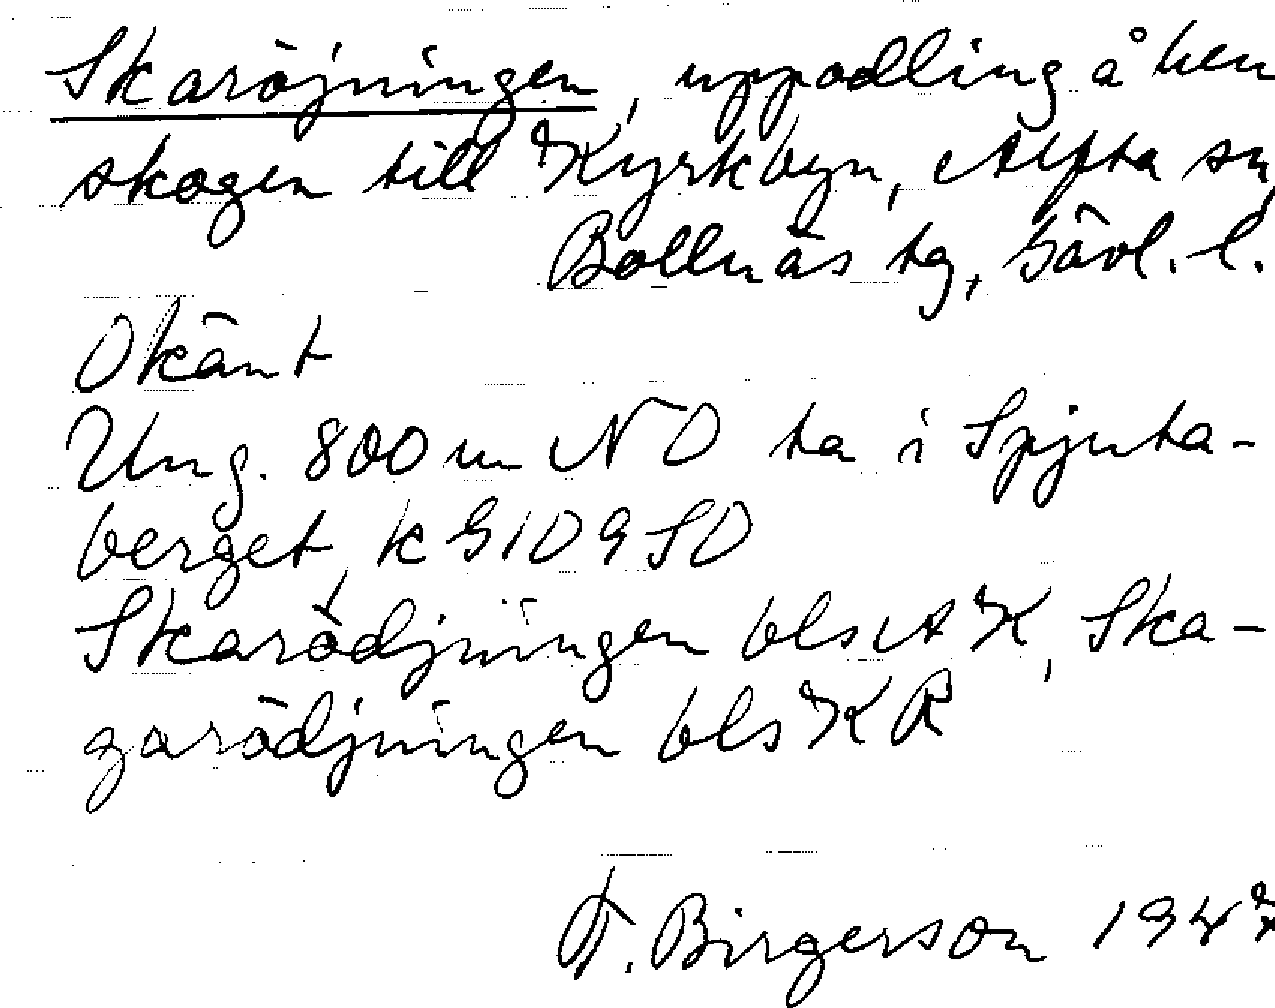 Skaröjningen, uppodling å hem
skogen till Kyrkbyn, Alfta sn,
Bollnäs tg, Gävl. l.
Okänt
Ung. 800 m NO ta i Spjuta-
berget, k 9109 SO
Skarödjningen bls AK, Ska-
garödjningen bls KR
F. Birgerson 194